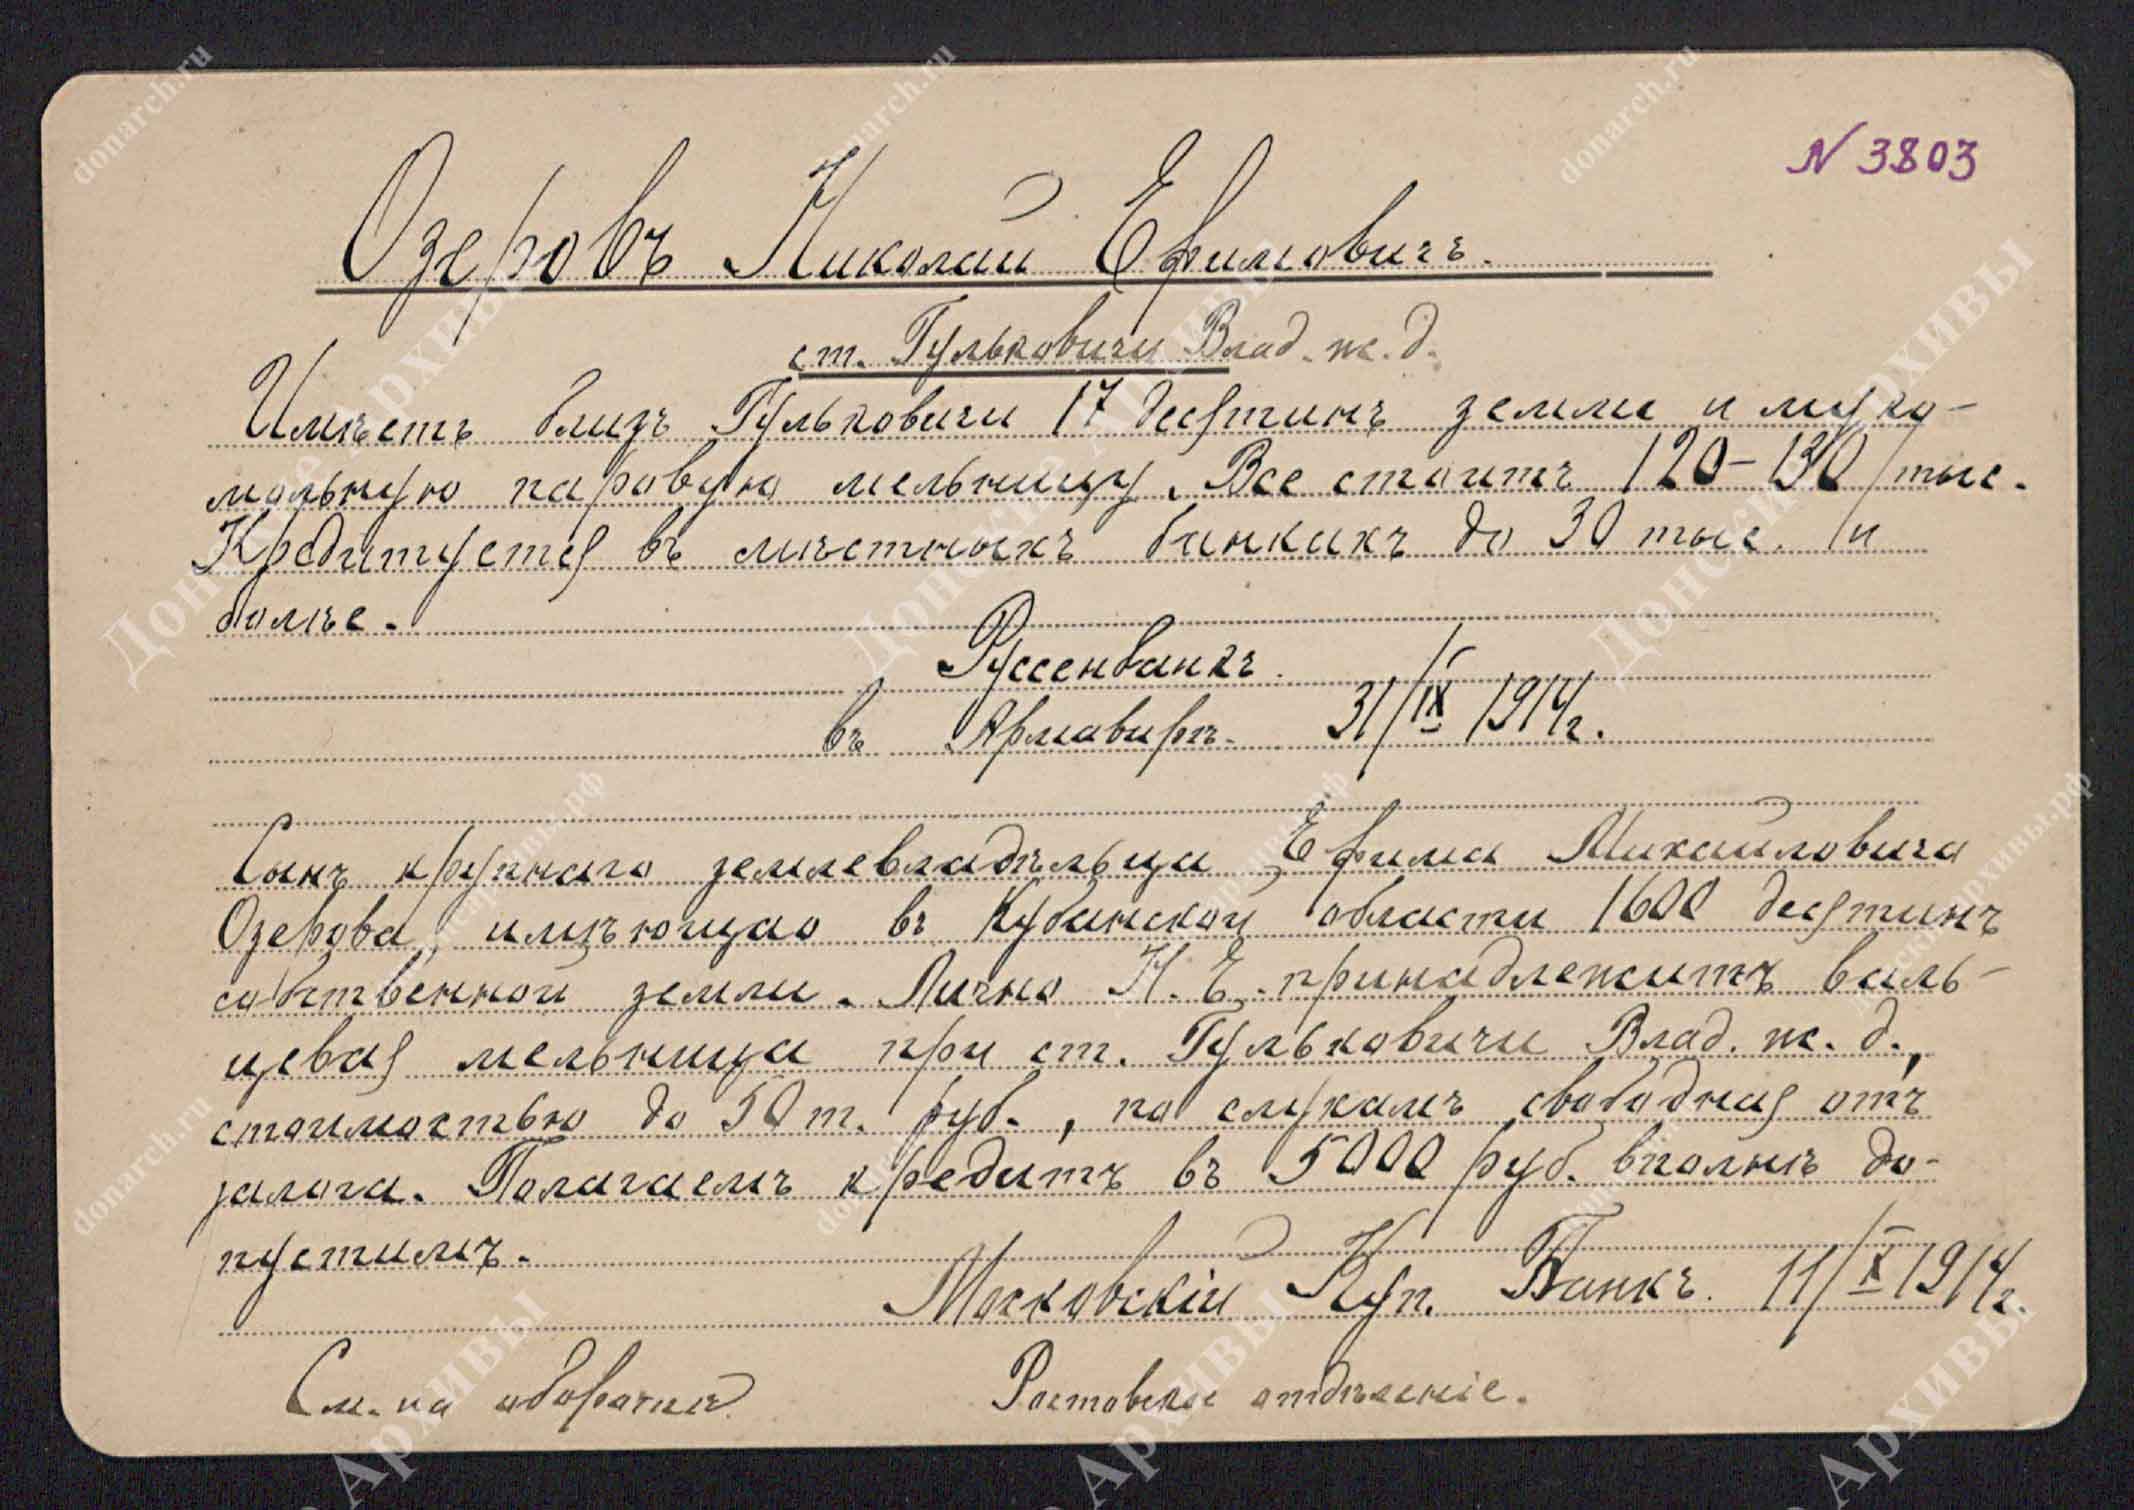 N 3803
Озеровъ Николай Ефимовичъ.
ст. Гульковичи Влад. ж. д.
Имѣетъ близъ Гульковичи 17 десятинъ земли и муко-
мольную паровую мельницу. Все стоитъ 120-130 тыс.
Кредитуется въ мѣстныхъ банкахъ до 30 тыс. и
болѣе.
Руссенбанкъ.
въ Армавирѣ. 31/IX 1914 г.
Сынъ крупнаго землевладѣльца Ефима Михайловича
Озерова, имѣющаго въ Кубанской области 1600 десятинъ
собственной земли. Лично Н. Е. принадлежитъ валь-
цевая мельница при ст. Гульковичи Влад. ж. д.,
стоимостью до 50 т. руб., по слухамъ свободная отъ
залога. Полагаемъ кредитъ въ 5000 руб. вполнѣ до-
пустимъ.
Московскій Куп. Банкъ. 11/X 1914 г.
См. на оборотѣ
Ростовское отдѣленіе.
donarch.ru
Донские Архивы
донскиеархивы.рф